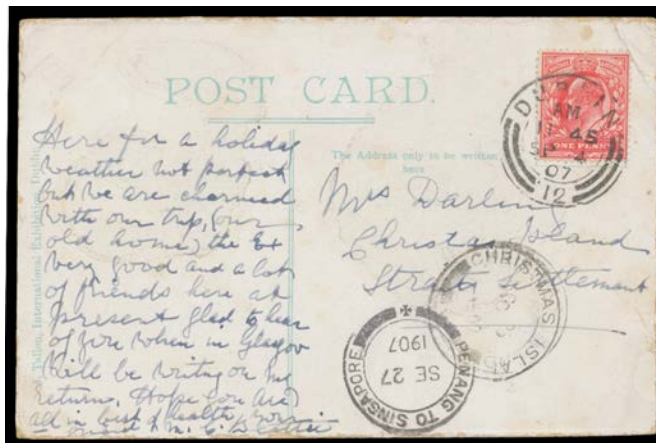 POST CARD.
The Address only to be written
here
Here for a holiday
weather not perfect
but we are charmed
with our trip, (our
old home) the Ex
very good and a lot
of friends here at
present glad to hear
of you when in Glasgow
will be writing on my
return, Hope you are
all in best of health your
friend M. C.
Mrs Darling
Christas Island
Straits Settlement
DUBLIN
AM
11 45
SP 4
07
12
ONE PENNY
CHRISTMAS ISLAND
PENANG TO SINGAPORE
SE 27
1907
Tallon, International Exhibition, Dublin